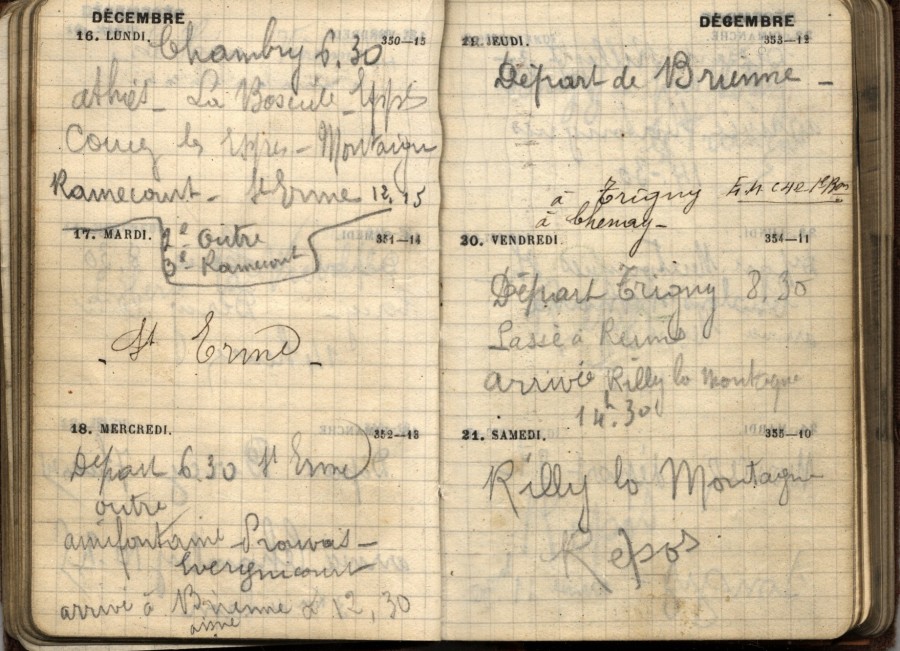 DÉCEMBRE
16. LUNDI. 350—15
Chambry 6.30
athies - La Boscule - Yppes
Coucy les Yppes - Montaigu
Ramecourt - St Erme 12.15
17. MARDI. 351—14
2e Outre
3e Ramecourt
- St Erme -
18. MERCREDI. 352—13
Départ 6.30 St Erme
outre
amifontaine Prouvais -
Evergnicourt
arrivé à Brienne à 12,30
aisne
DÉCEMBRE
19. JEUDI. 353—12
Départ de Brienne -
à Trigny
à Chenay -
20. VENDREDI. 354—11
Départ Trigny 8.30
Passé à Reims
arrivée Rilly la Montagne
14h.30
21. SAMEDI. 355—10
Rilly la Montagne
Repos